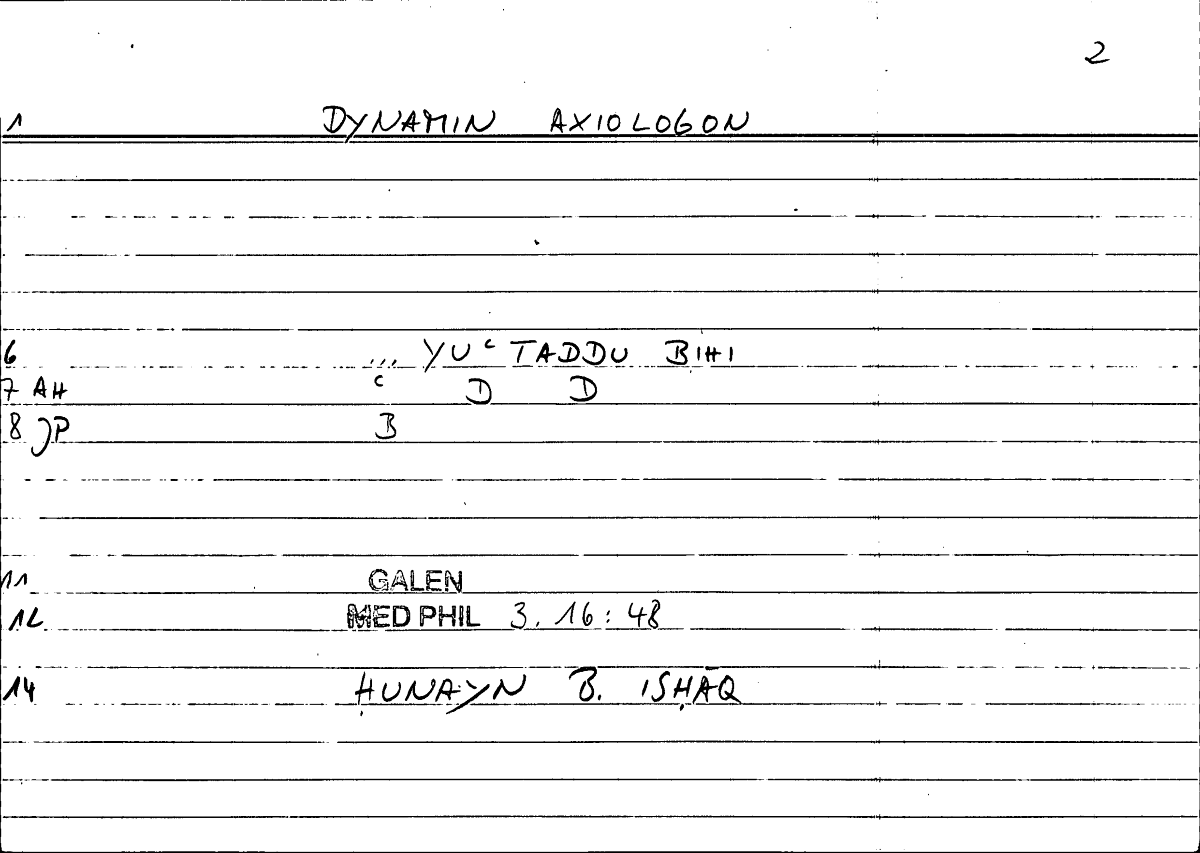 2
1 DYNAMIN AXIOLOGON
6 ... YUᶜTADDU BIHI
7 AH ᶜ D D
8 JP B
11 GALEN
12 MED PHIL 3. 16: 48
14 ḤUNAYN B. ISḤĀQ